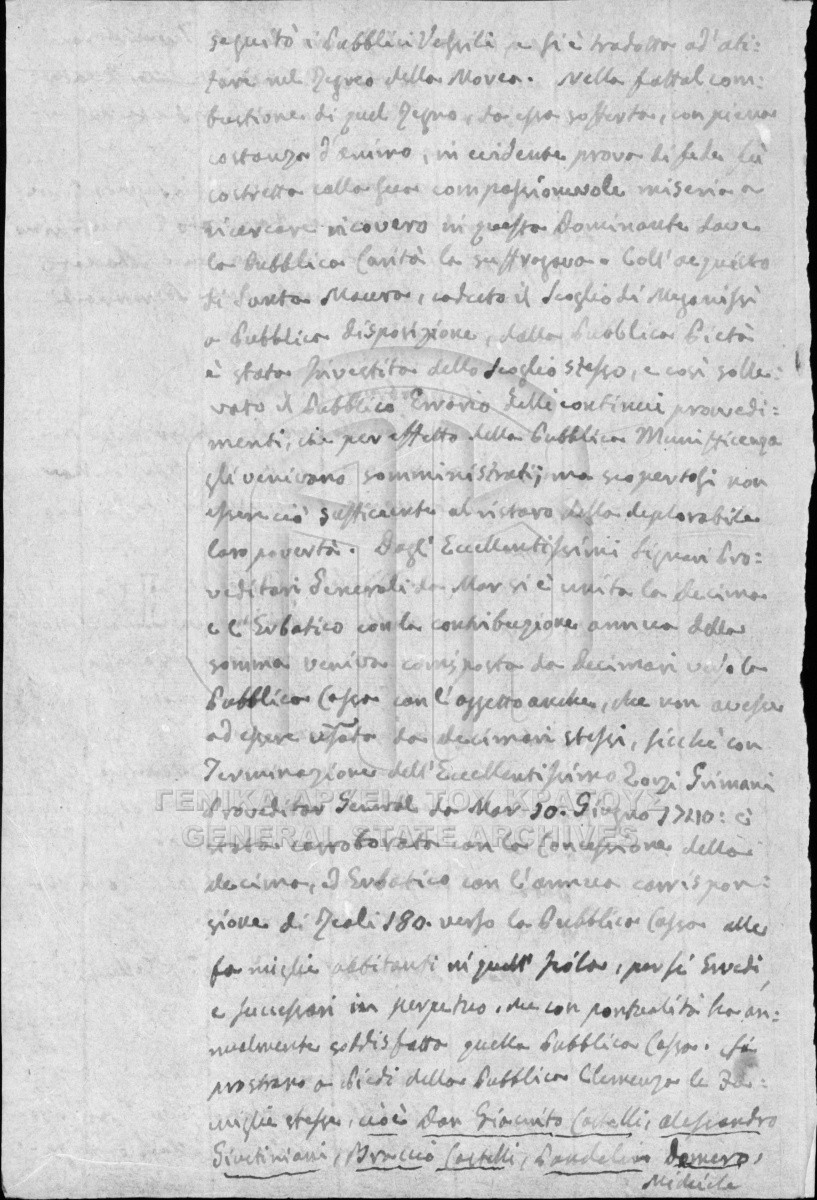 seguitò i Pubblici Vessili, e si è tradotta ad' abi-
tare nel Regno della Morea. Nella fattal com-
bustione di quel Regno, da essa sofferta, con piena
costanza d'animo, in evidente prova di fede fù
costretta dalla sua compassionevole miseria a
ricercare ricovero in questa Dominante dove
la Pubblica Carità la suffragava. Coll' acquisto
di Santa Maura, caduto il Scoglio di Meganissi
a Pubblica disposizione, dalla Pubblica Pietà
è stata Investita dello Scoglio stesso, e così solle-
vato il Pubblico Errario delli continui provvedi-
menti, che per effetto della Pubblica Munificenza
gli venivano somministrati; ma scopertosi non
essere ciò sufficiente al ristaro della deplorabile
loro povertà. Dagl' Eccellentissimi Signori Pro-
veditori Generali da Mar si è unita la Decima
e l'Erbatico con la contribuzione annua della
somma veniva corrisposta da Decimari verso la
Pubblica Cassa con l'oggetto anche, che non avesse
ad essere da decimari stessi, sicchè con
Terminazione dell' Eccellentissimo Zorzi Grimani
Proveditor General da Mar 10. Giugno 1740: è
stata corroborata con la Concessione della
decima, ed Erbatico con l'annua corrispon-
sione di Reali 180. verso la Pubblica Cassa alle
famiglie abbitanti in quell' Isola, per sè Eredi,
e successori in perpetuo, che con pontualità ha an-
nualmente soddisfatta quella Pubblica Cassa. Si
prostrano a Piedi della Pubblica Clemenza le Fa-
miglie stesse, cioè Don Giacinto Castelli, Alessandro
Giustiniani, Braccio Castelli, Pandelin Domero,
Michiele
ΓΕΝΙΚΑ ΑΡΧΕΙΑ ΤΟΥ ΚΡΑΤΟΥΣ
GENERAL STATE ARCHIVES